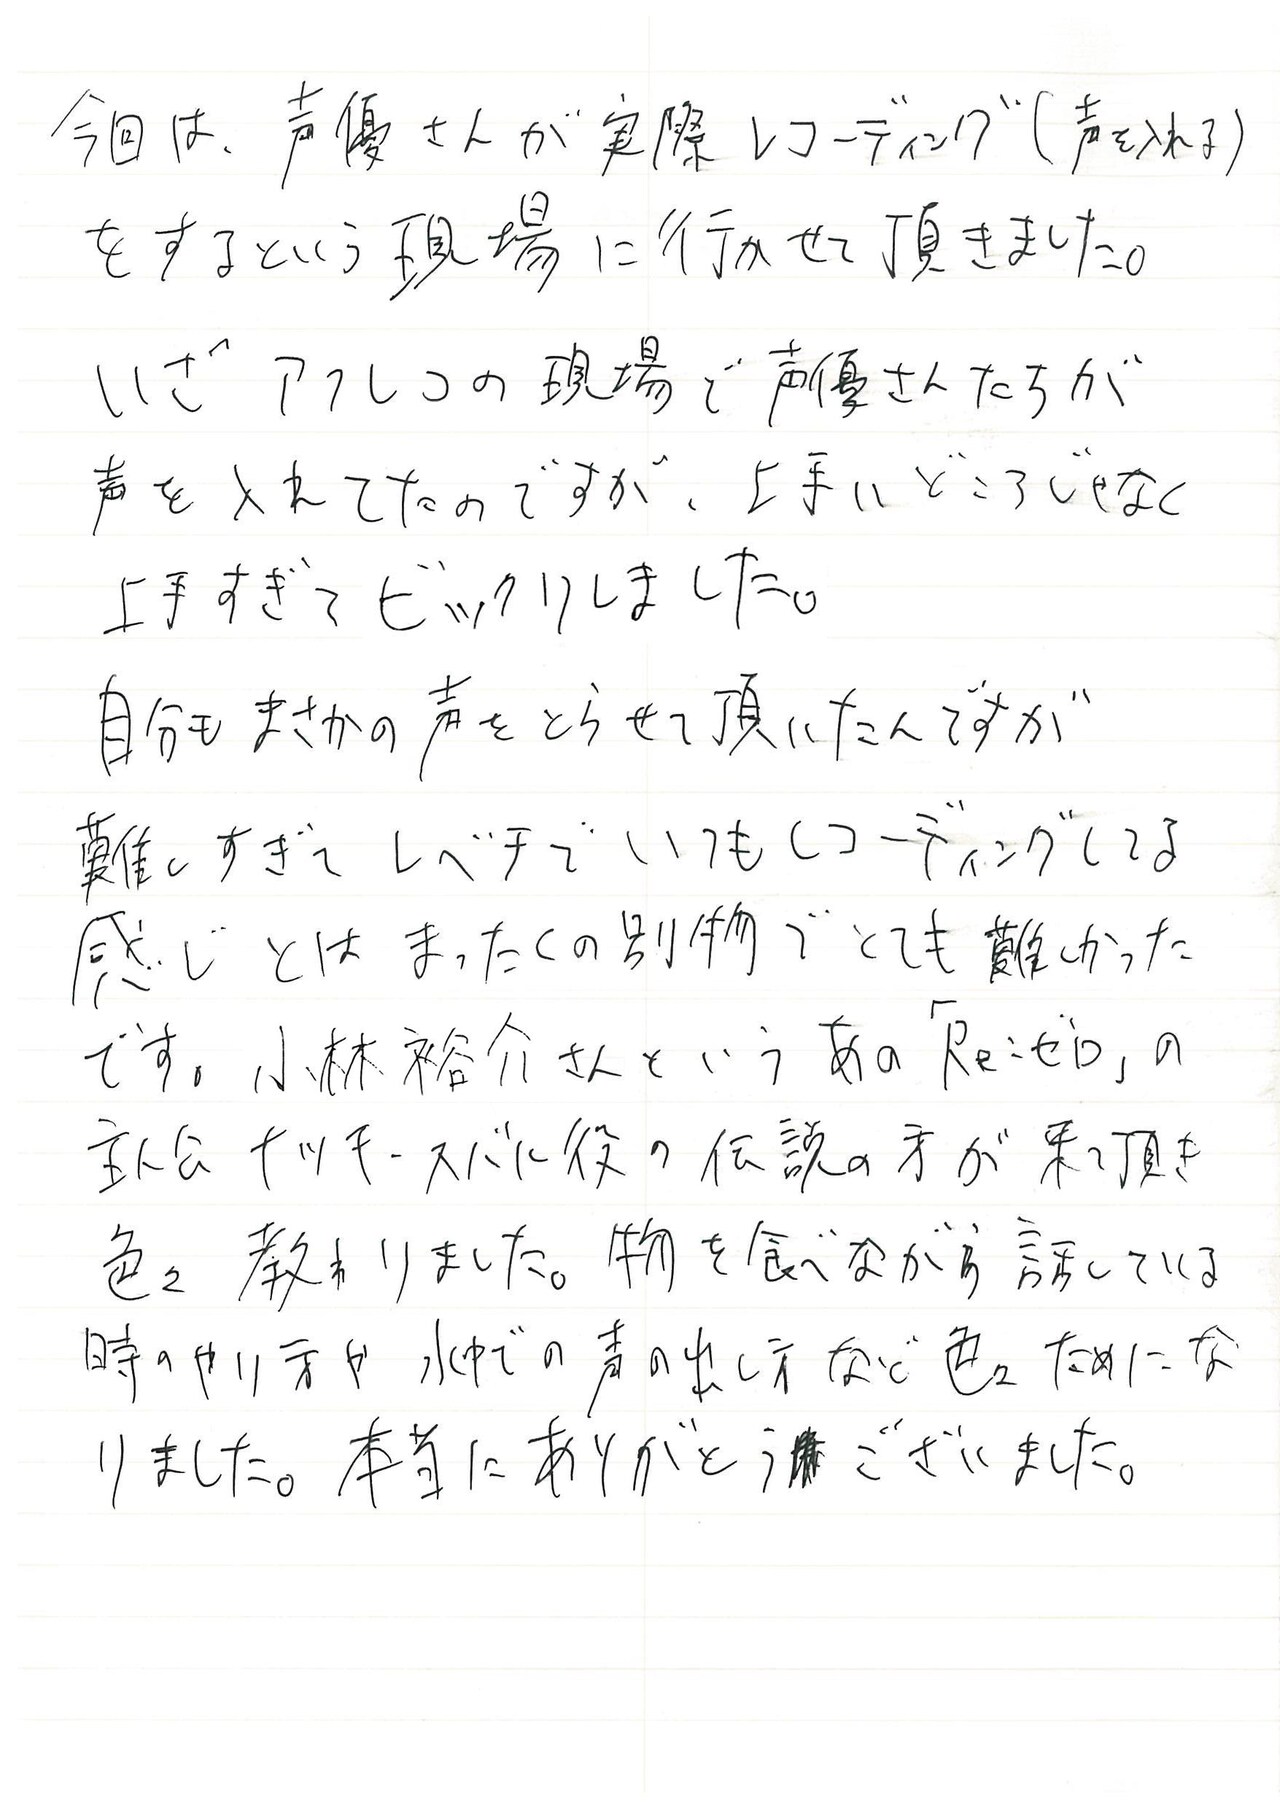 今回は、声優さんが実際レコーディング(声を入れる)
をするという現場に行かせて頂きました。
いざアフレコの現場で声優さんたちが
声を入れてたのですが、上手いどころじゃなく
上手すぎてビックリしました。
自分もまさかの声をとらせて頂いたんですが
難しすぎてレベチでいつもレコーディングしてる
感じとはまったくの別物でとても難しかった
です。小林裕介さんというあの「Re:ゼロ」の
主人公ナツキ・スバル役の伝説の方が来て頂き
色々教わりました。物を食べながら話している
時のやり方や水中での声の出し方など色々ためにな
りました。本当にありがとうございました。